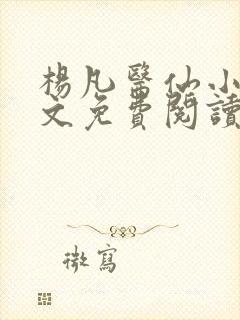 楊凡醫仙小
文免費閱讀
微寫